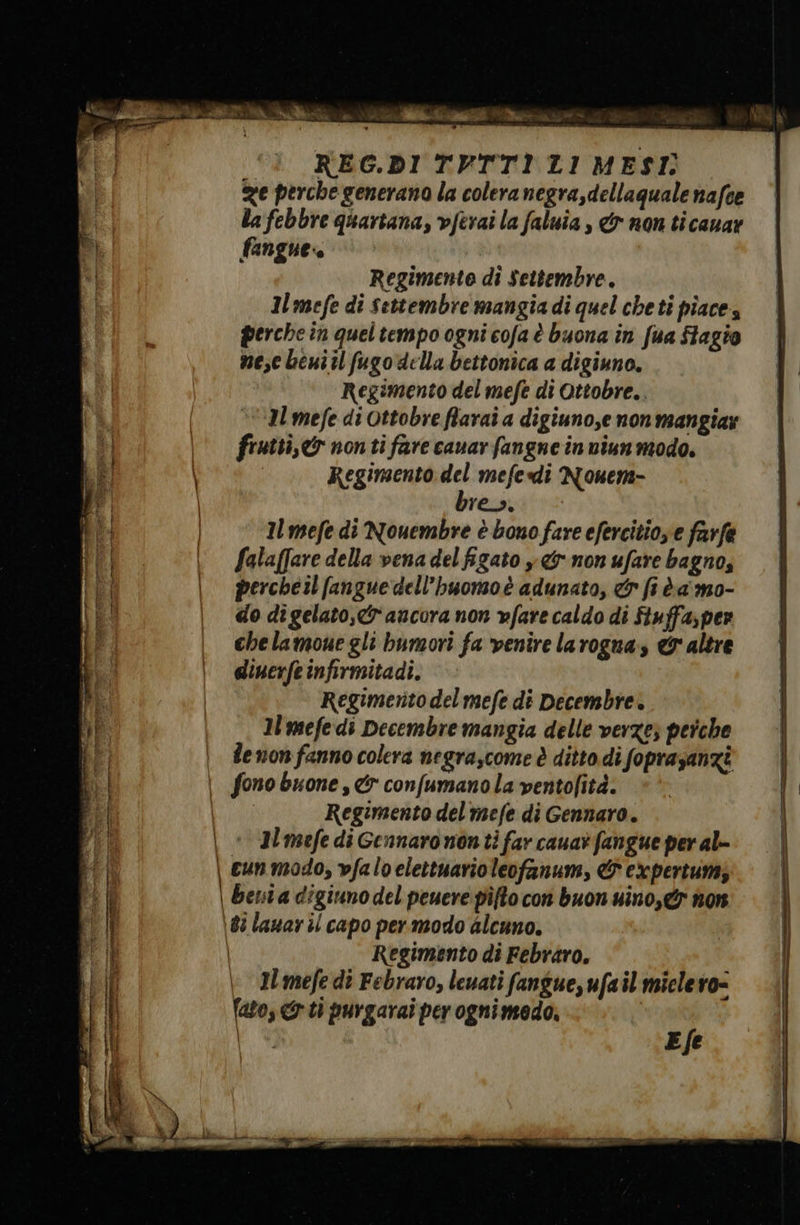 REG. DI TVTTI LI MESI.
ze perche generano la colera negra, dellaquale nasce
la febbre quartana, vserai la saluia, & non ti cauar
sangue.
Regimento di Settembre.
Il mese di Settembre mangia di quel che ti piace,
perche in quel tempo ogni cosa è buona in sua stagio
ne, e beui il sugo della bettonica a digiuno.
Regimento del mese di Ottobre.
Il mese di Ottobre starai a digiuno, e non mangiar
frutti, & non ti fare cauar sangne in niun modo.
Regimento del mese di Nouem-
bre.
Il mese di Nouembre è bono fare esercitio, e farse
salassare della vena del figato, & non usare bagno,
perche il sangue dell'huomo è adunato, & si è a mo-
do di gelato, & ancora non vsare caldo di stuffa, per
che la moue gli humori fa venire la rogna, & altre
diuerse infirmitadi.
Regimento del mese di Decembre.
Il mese di Decembre mangia delle verze, perche
le non fanno colera negra, come è ditto di sopra, anzi
sono buone, & consumano la ventosità.
Regimento del mese di Gennaro.
Il mese di Gennaro non ti far cauar sangue per al-
cun modo, vsa lo elettuario leosanum, & expertum,
beui a digiuno del peuere pisto con buon uino, & non
ti lauar il capo per modo alcuno.
Regimento di Febraro.
Il mese di Febraro, leuati sangue, usa il miele ro-
sato, & ti purgarai per ogni modo.
Ese